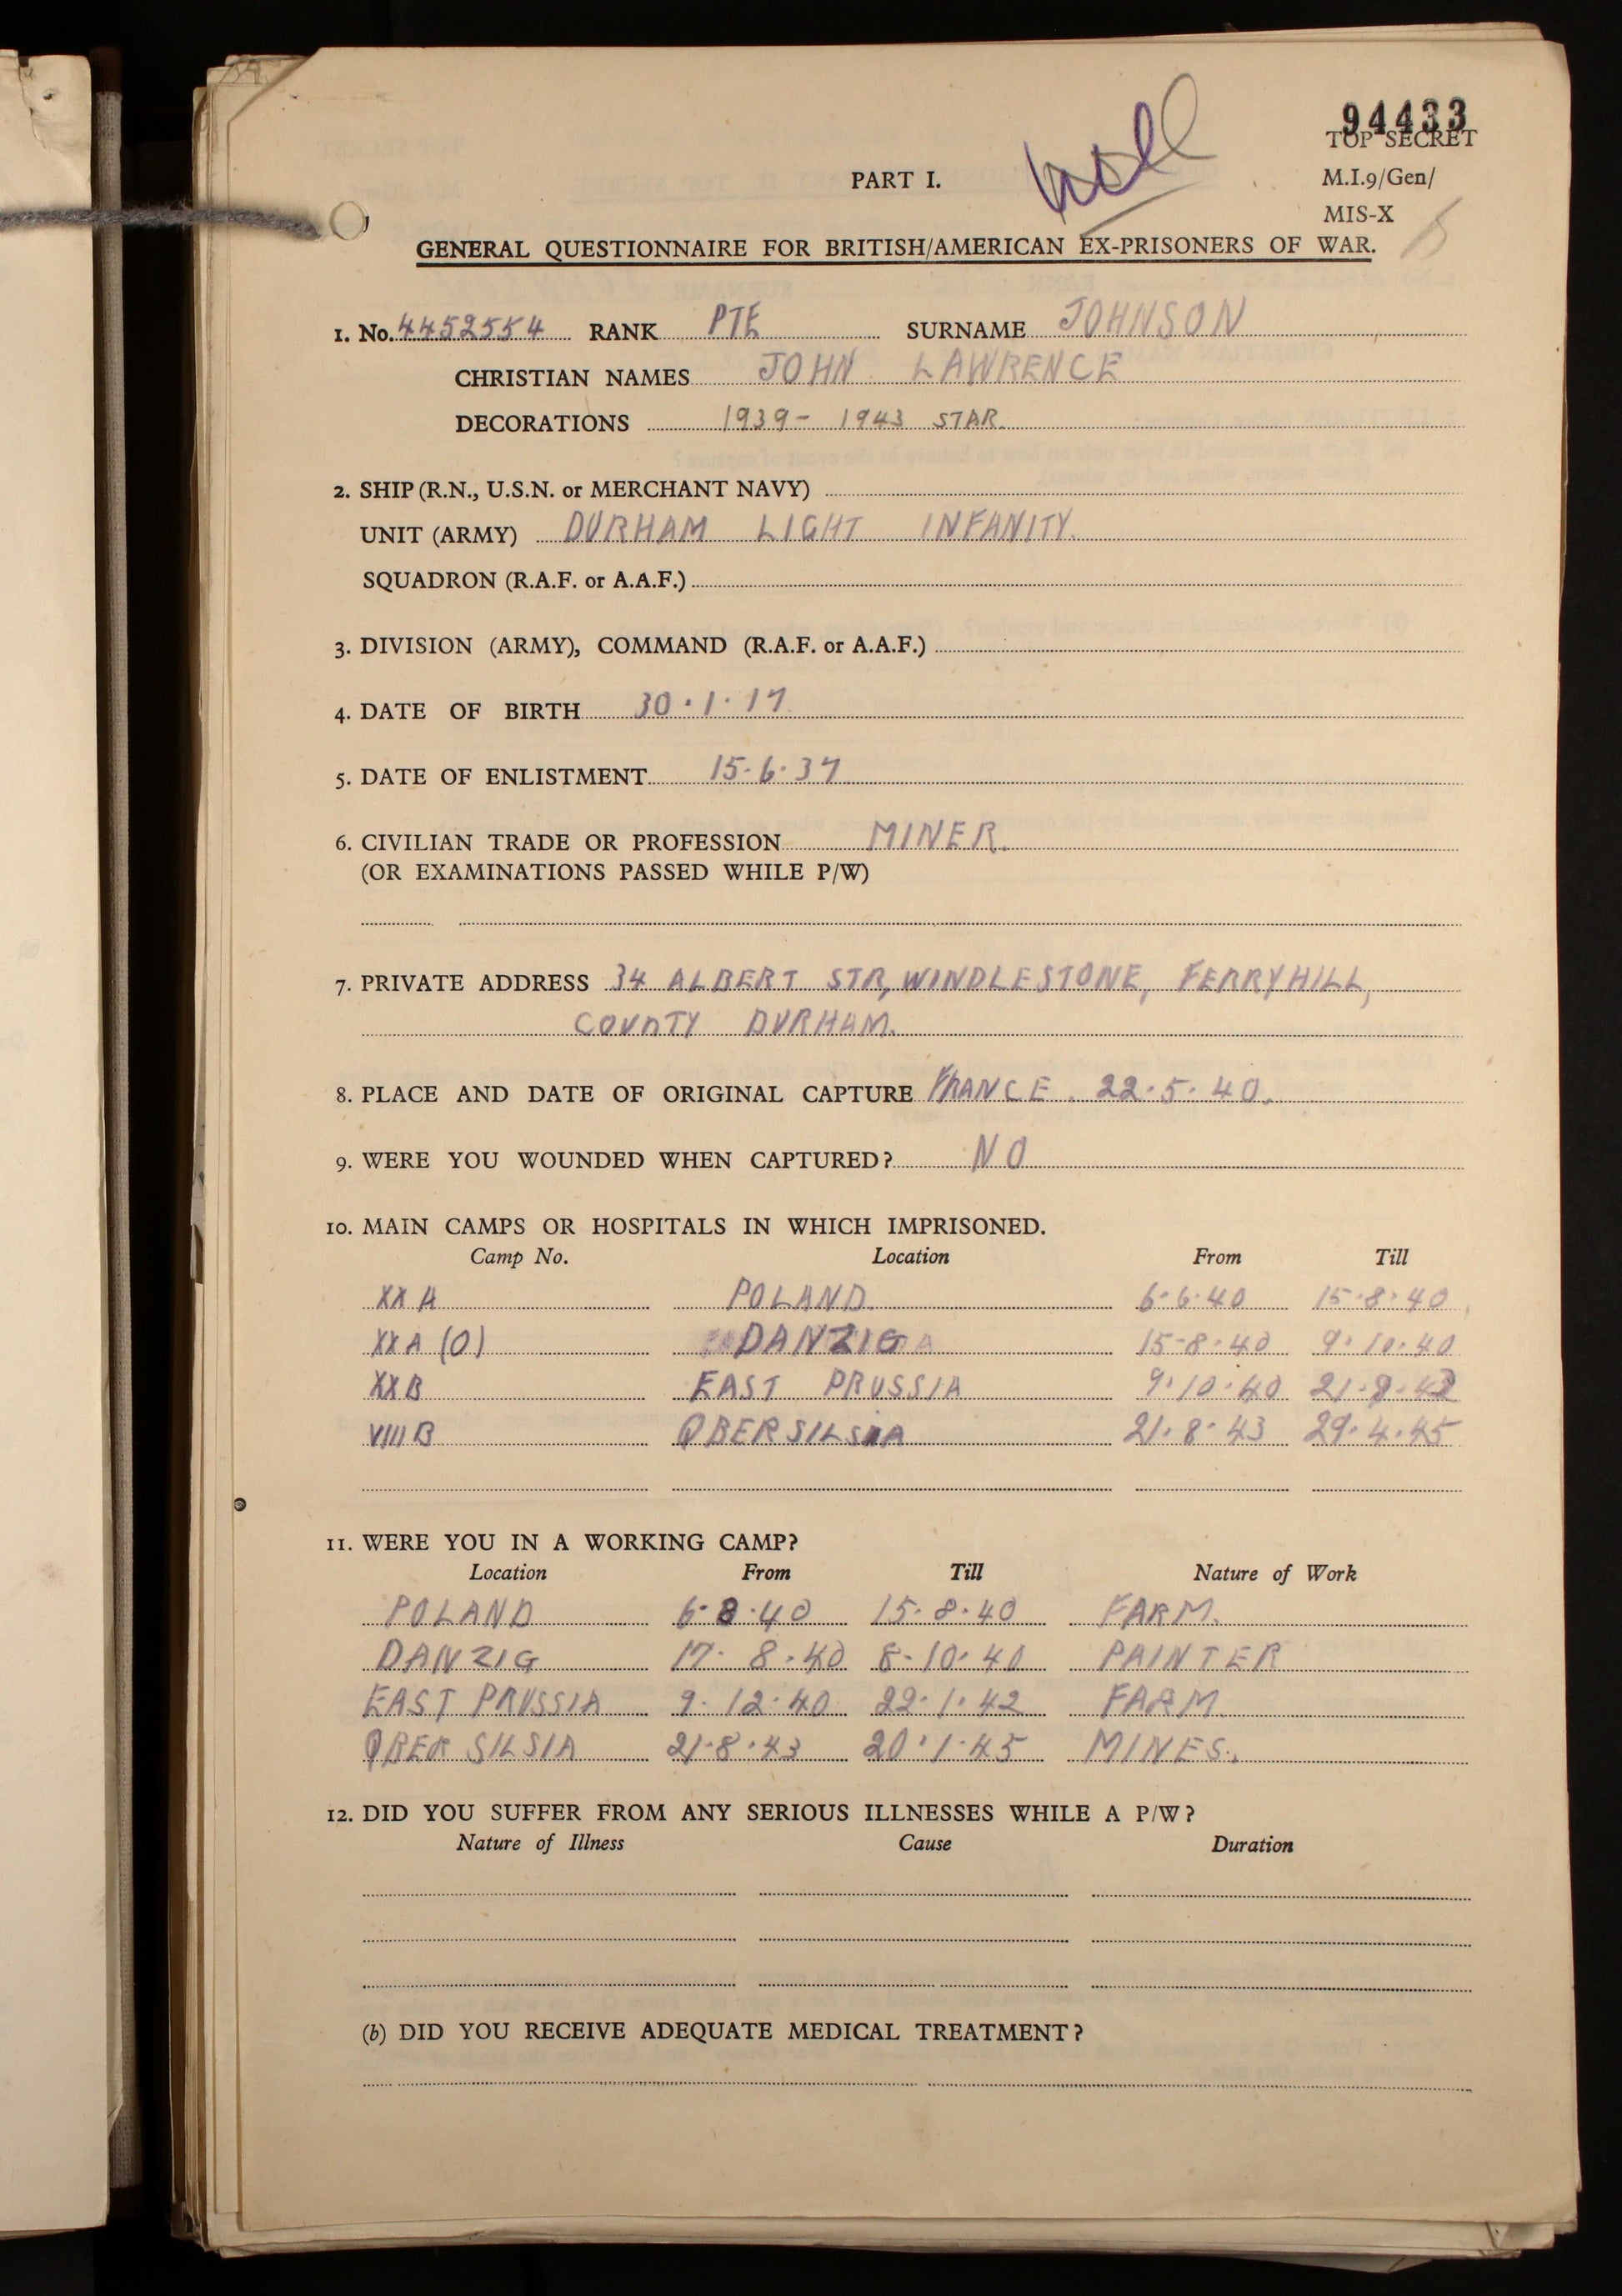 94433
TOP SECRET
PART I.
M.I.9/Gen/
MIS-X
GENERAL QUESTIONNAIRE FOR BRITISH/AMERICAN EX-PRISONERS OF WAR.
1. No. 4452554 RANK PTE SURNAME JOHNSON
CHRISTIAN NAMES JOHN LAWRENCE
DECORATIONS 1939 - 1943 STAR.
2. SHIP (R.N., U.S.N. or MERCHANT NAVY)
UNIT (ARMY) DURHAM LIGHT INFANITY.
SQUADRON (R.A.F. or A.A.F.)
3. DIVISION (ARMY), COMMAND (R.A.F. or A.A.F.)
4. DATE OF BIRTH 30.1.17
5. DATE OF ENLISTMENT 15.6.37
6. CIVILIAN TRADE OR PROFESSION MINER.
(OR EXAMINATIONS PASSED WHILE P/W)
7. PRIVATE ADDRESS 34 ALBERT STR, WINDLESTONE, FERRYHILL,
COUNTY DURHAM.
8. PLACE AND DATE OF ORIGINAL CAPTURE FRANCE. 22.5.40.
9. WERE YOU WOUNDED WHEN CAPTURED? NO
10. MAIN CAMPS OR HOSPITALS IN WHICH IMPRISONED.
Camp No. Location From Till
XX A POLAND. 6.6.40 15.8.40
XX A (O) DANZIG 15-8.40 9.10.40
XX B EAST PRUSSIA 9.10.40 21.8.43
VIII B OBERSILSIA 21.8.43 29.4.45
11. WERE YOU IN A WORKING CAMP?
Location From Till Nature of Work
POLAND 6.8.40 15.8.40 FARM.
DANZIG 17.8.40 8.10.40 PAINTER
EAST PRUSSIA 9.12.40 22.1.42 FARM.
OBER SILSIA 21.8.43 20.1.45 MINES.
12. DID YOU SUFFER FROM ANY SERIOUS ILLNESSES WHILE A P/W?
Nature of Illness Cause Duration
(b) DID YOU RECEIVE ADEQUATE MEDICAL TREATMENT?